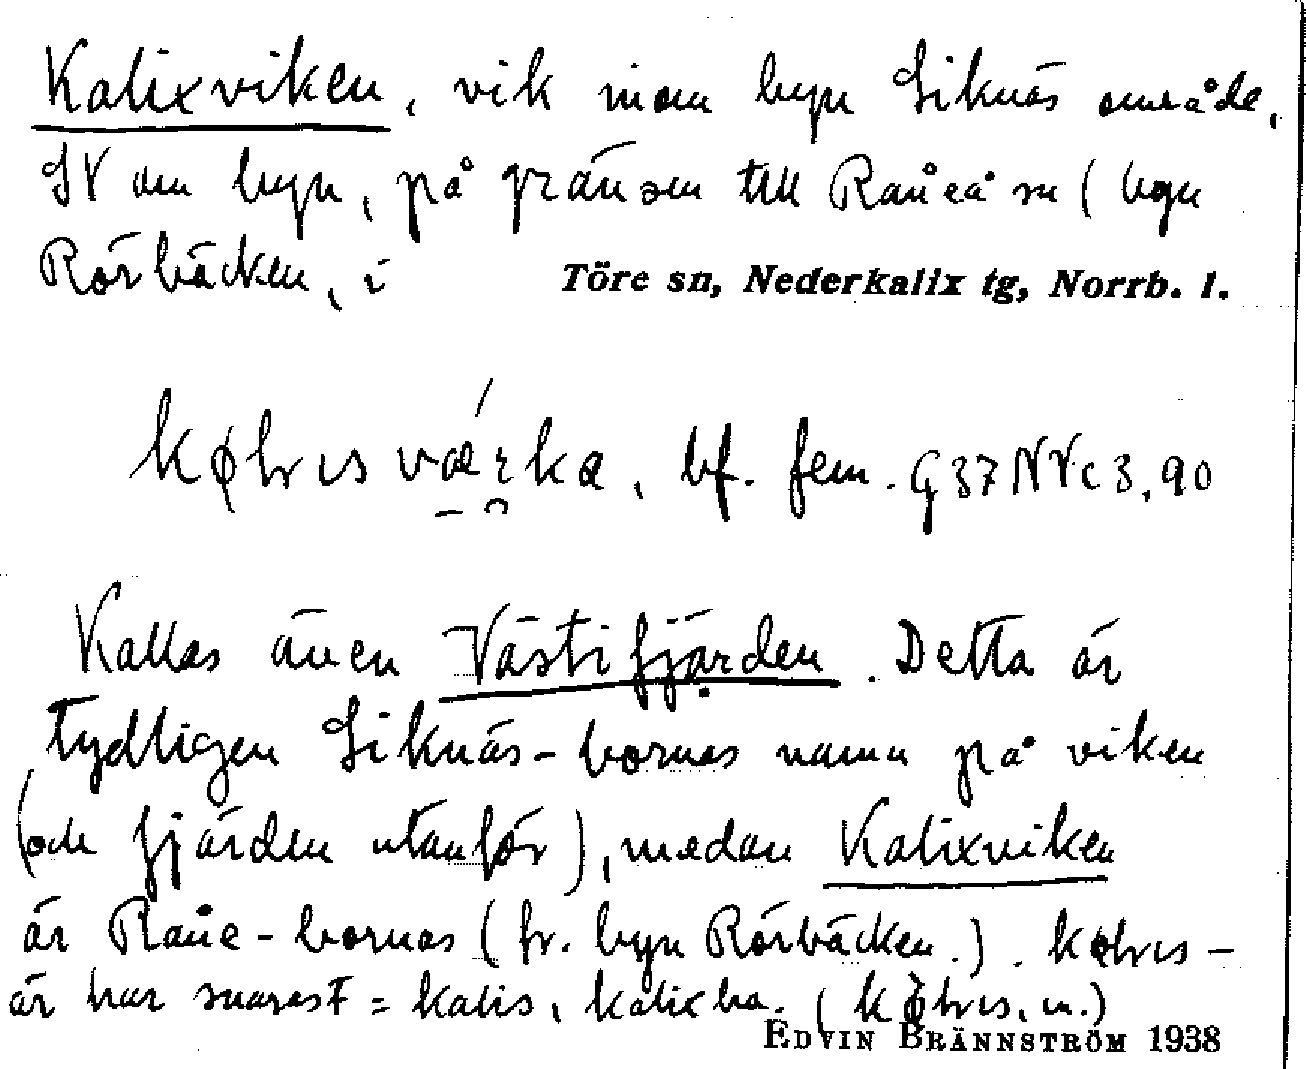 Kalixviken, vik inom byn Siknäs område,
SV om byn, på gränsen till Råneå sn (byn
Rörbäcken, i Töre sn, Nederkalix tg, Norrb. l.
bf. fem.
Kallas även Västifjärden. Detta är
tydligen Siknäs-bornas namn på viken
(och fjärden utanför), medan Kalixviken
är Råne-bornas (fr. byn Rörbäcken.).
är här snarast = kalis, kalixbo.
EDVIN BRÄNNSTRÖM 1938